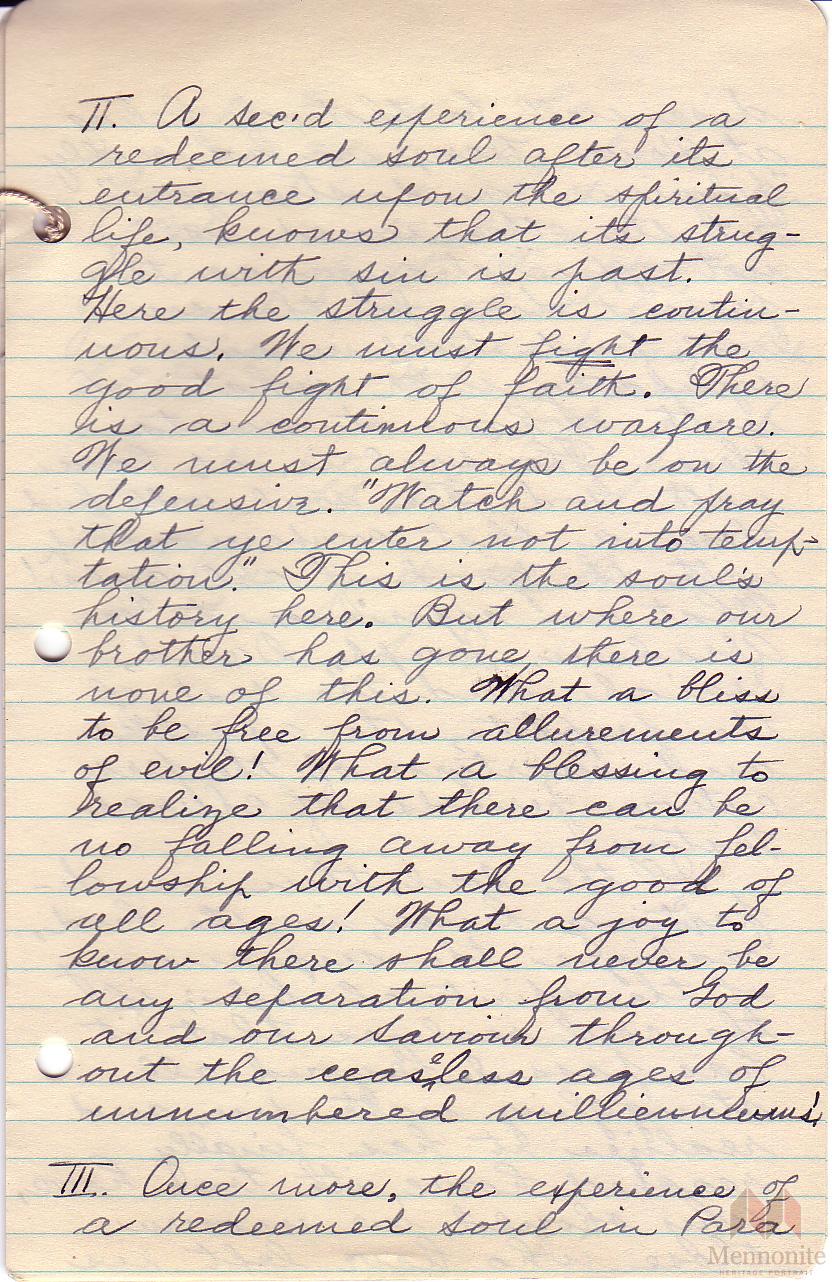 II. A sec'd experience of a
redeemed soul after its
entrance upon the spiritual
life, knows that its strug-
gle with sin is past.
Here the struggle is contin-
uous. We must fight the
good fight of faith. There
is a continuous warfare.
We must always be on the
defensive. "Watch and pray
that ye enter not into temp-
tation." This is the soul's
history here. But where our
brother has gone there is
none of this. What a bliss
to be free from allurements
of evil! What a blessing to
realize that there can be
no falling away from fel-
lowship with the good of
all ages! What a joy to
know there shall never be
any separation from God
and our Saviour through-
out the ceaseless ages of
unnumbered millienniums!
III. Once more, the experience of
a redeemed soul in Para
Mennonite
HERITAGE PORTRAIT